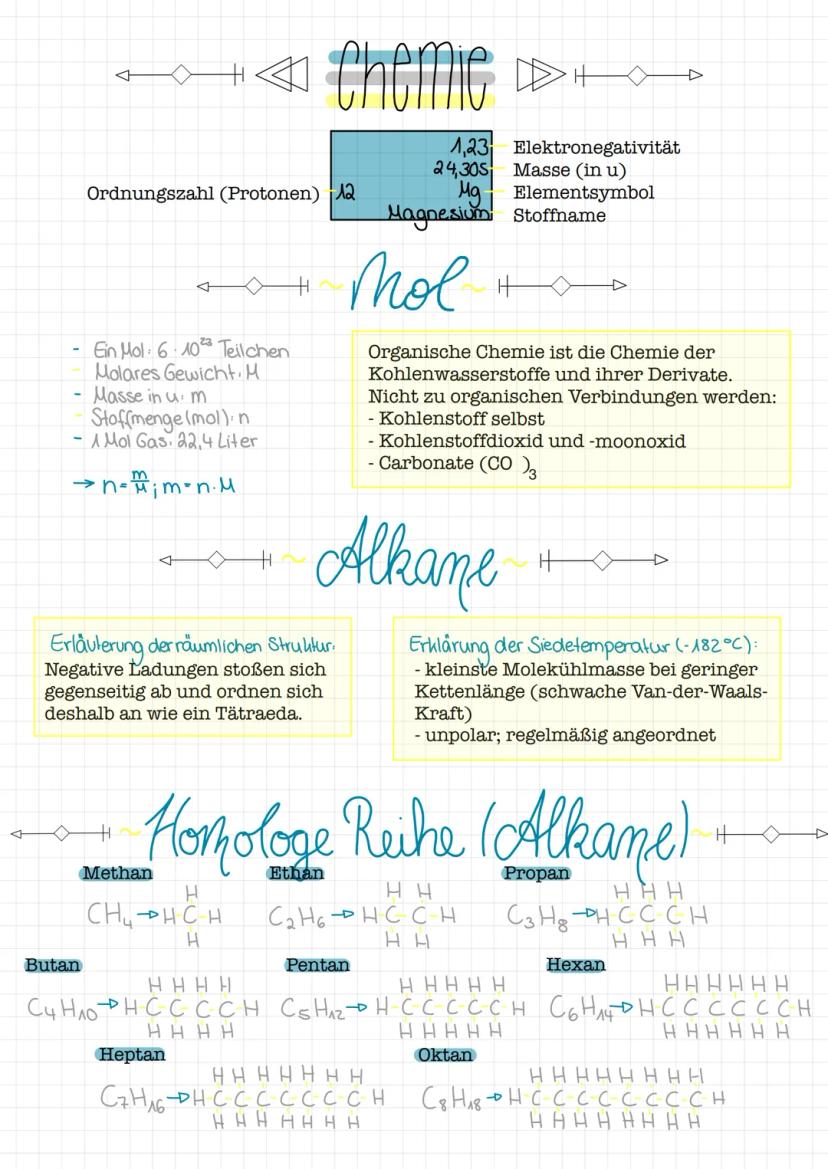 Chemie
1,23 Elektronegativität
24,305 Masse (in u)
Ordnungszahl (Protonen) 12 Mg Elementsymbol
Magnesium Stoffname
~ Mol ~
- Ein Mol: 6 · 10²³ Teilchen
- Molares Gewicht: M
- Masse in u: m
- Stoffmenge (mol): n
- 1 Mol Gas: 22,4 Liter
→ n = m/M ; m = n · M
Organische Chemie ist die Chemie der
Kohlenwasserstoffe und ihrer Derivate.
Nicht zu organischen Verbindungen werden:
- Kohlenstoff selbst
- Kohlenstoffdioxid und -moonoxid
- Carbonate (CO )₃
~ Alkane ~
Erläuterung der räumlichen Struktur:
Negative Ladungen stoßen sich
gegenseitig ab und ordnen sich
deshalb an wie ein Tätraeda.
Erklärung der Siedetemperatur (-182°C):
- kleinste Molekühlmasse bei geringer
Kettenlänge (schwache Van-der-Waals-
Kraft)
- unpolar; regelmäßig angeordnet
~ Homologe Reihe (Alkane) ~
Methan Ethan Propan
H H H H H H
CH₄ → H-C-H C₂H₆ → H-C-C-H C₃H₈ → H-C-C-C-H
H H H H H H
Butan Pentan Hexan
H H H H H H H H H H H H H H H
C₄H₁₀ → H-C-C-C-C-H C₅H₁₂ → H-C-C-C-C-C-H C₆H₁₄ → H-C-C-C-C-C-C-H
H H H H H H H H H H H H H H H
Heptan Oktan
H H H H H H H H H H H H H H H
C₇H₁₆ → H-C-C-C-C-C-C-C-H C₈H₁₈ → H-C-C-C-C-C-C-C-C-H
H H H H H H H H H H H H H H H